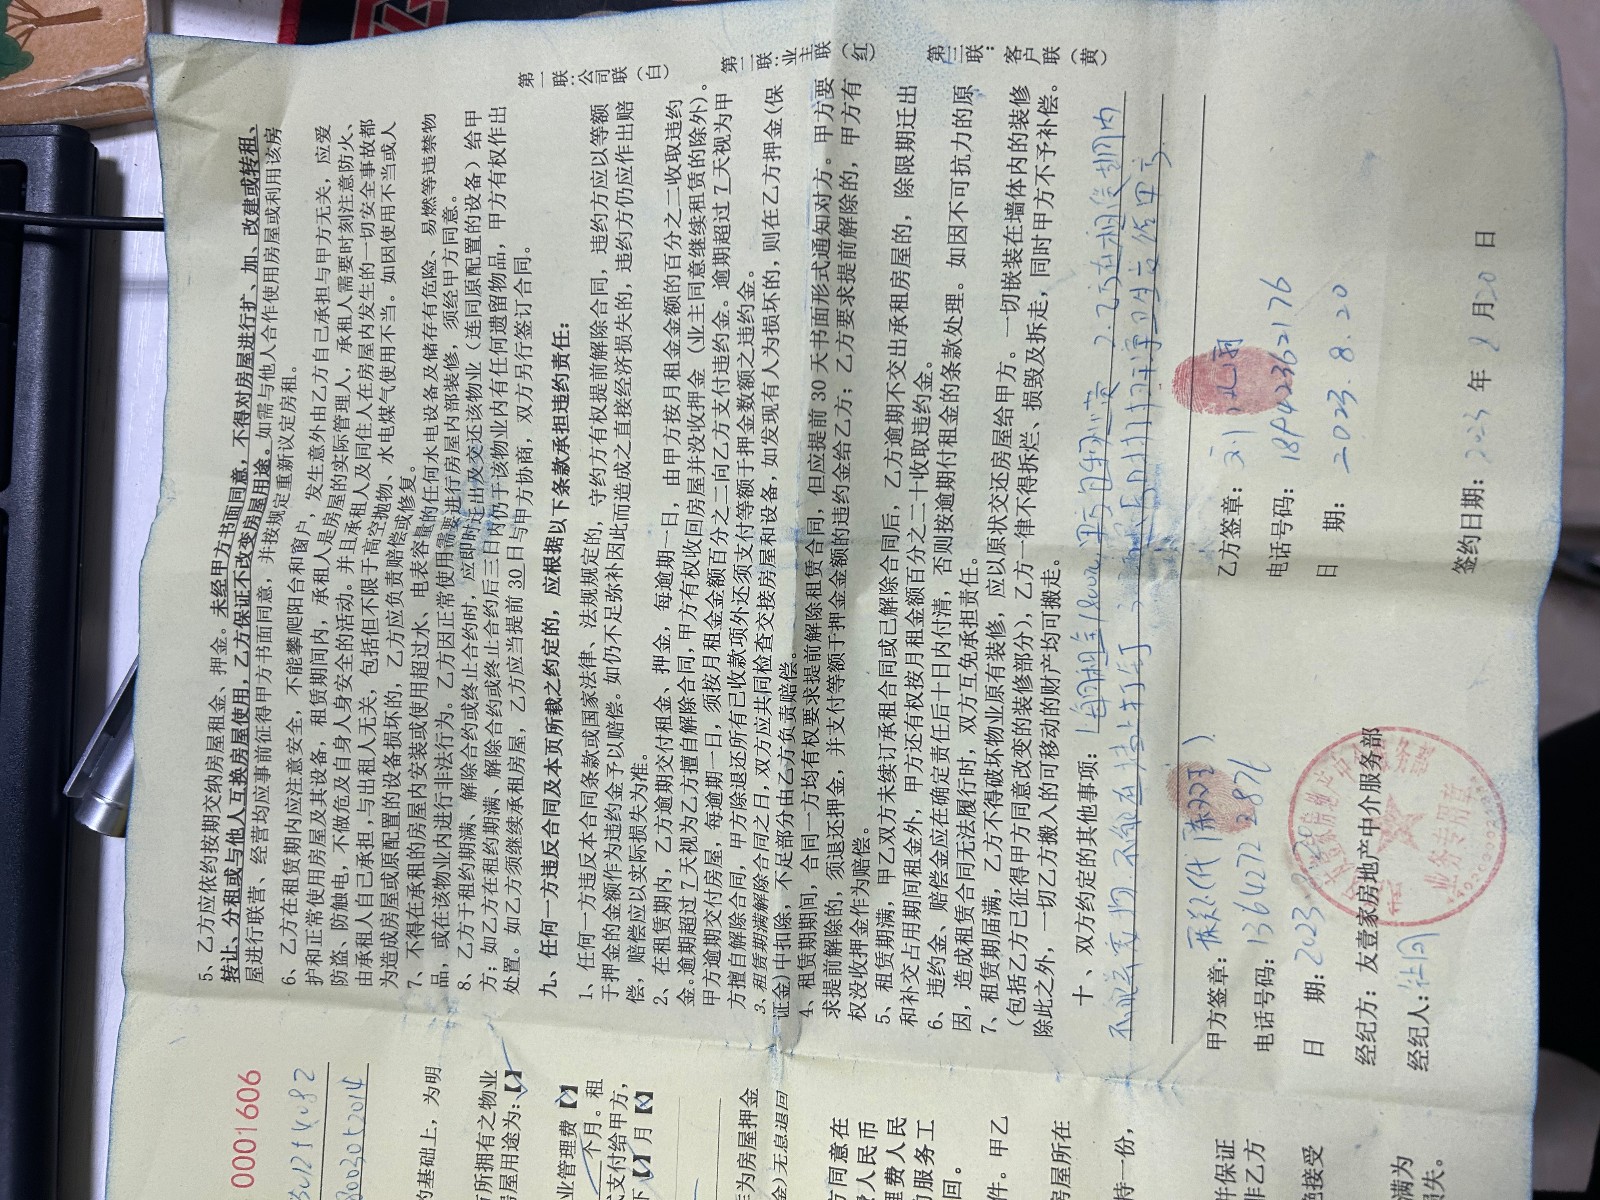 5、乙方应依约按期交纳房屋租金、押金。未经甲方书面同意，不得对房屋进行扩、加、改建或转租、
转让、分租或与他人互换房屋使用，乙方保证不改变房屋用途。如需与他人合作使用房屋或利用该房
屋进行联营、经营均应事前征得甲方书面同意，并按规定重新议定房租。
6、乙方在租赁期内应注意安全，不能攀爬阳台和窗户，发生意外由乙方自己承担与甲方无关，应爱
护和正常使用房屋及其设备，租赁期间内，承租人是房屋的实际管理人，承租人需要时刻注意防火、
防盗、防触电，不做危及自身人身安全的活动。并且承租人及同住人在房屋内发生的一切安全事故都
由承租人自己承担，与出租人无关，包括但不限于高空抛物、水电煤气使用不当。如因使用不当或人
为造成房屋或原配置的设备损坏的，乙方应负责赔偿或修复。
7、不得在承租的房屋内安装或使用超过水、电表容量的任何水电设备及储存有危险、易燃等违禁物
品，或在该物业内进行非法行为。乙方因正常使用需要进行房屋内部装修，须经甲方同意。
8、乙方于租约期满、解除合约或终止合约时，应即时迁出及交还该物业（连同原配置的设备）给甲
方；如乙方在租约期满、解除合约或终止合约后三日内仍于该物业内有任何遗留物品，甲方有权作出
处置。如乙方须继续承租房屋，乙方应当提前30日与甲方协商，双方另行签订合同。
九、任何一方违反合同及本页所载之约定的，应根据以下条款承担违约责任：
1、任何一方违反本合同条款或国家法律、法规规定的，守约方有权提前解除合同，违约方应以等额
于押金的金额作为违约金予以赔偿。如仍不足弥补因此而造成之直接经济损失的，违约方仍应作出赔
偿，赔偿应以实际损失为准。
2、在租赁期内，乙方逾期交付租金、押金，每逾期一日，由甲方按月租金金额的百分之二收取违约
金。逾期超过7天视为乙方擅自解除合同，甲方有权收回房屋并没收押金（业主同意继续租赁的除外）。
甲方逾期交付房屋，每逾期一日，须按月租金金额百分之二向乙方支付违约金。逾期超过7天视为甲
方擅自解除合同，甲方除退还所有已收款项外还须支付等额于押金数额之违约金。
3、租赁期满解除合同之日，双方应共同检查交接房屋和设备，如发现有人为损坏的，则在乙方押金（保
证金）中扣除，不足部分由乙方负责赔偿。
4、租赁期期间，合同一方均有权要求提前解除租赁合同，但应提前30天书面形式通知对方。甲方要
求提前解除的，须退还押金，并支付等额于押金金额的违约金给乙方；乙方要求提前解除的，甲方有
权没收押金作为赔偿。
5、租赁期满，甲乙双方未续订承租合同或已解除合同后，乙方逾期不交出承租房屋的，除限期迁出
和补交占用期间租金外，甲方还有权按月租金额百分之二十收取违约金。
6、违约金、赔偿金应在确定责任后十日内付清，否则按逾期付租金的条款处理。如因不可抗力的原
因，造成租赁合同无法履行时，双方互免承担责任。
7、租赁期届满，乙方不得破坏物业原有装修，应以原状交还房屋给甲方。一切嵌装在墙体内的装修
（包括乙方已征得甲方同意改变的装修部分），乙方一律不得拆烂、损毁及拆走，同时甲方不予补偿。
除此之外，一切乙方搬入的可移动的财产均可搬走。
十、双方约定的其他事项：1.每月租金1800元 2.乙方在租赁期内
不能养宠物 不能在墙上打钉
甲方签章：（代
电话号码：13642722876
日 期：2023
经纪方：友壹家房地产中介服务部
经纪人：
业务专用章
乙方签章：
电话号码：18942362176
日 期：2023.8.20
签约日期：2023年8月20日
第一联：公司联（白）
第二联：业主联（红）
第三联：客户联（黄）
0001606
的基础上，为明
所拥有之物业
屋用途为：【✓】
业管理费【✓】
个月。租
支付给甲方，
【✓】月【✓】
作为房屋押金
金）无息退回
方同意在
人民币
费人民
服务工
回。
件。甲乙
房屋所在
持一份，
并保证
非乙方
绝接受
满为
损失。